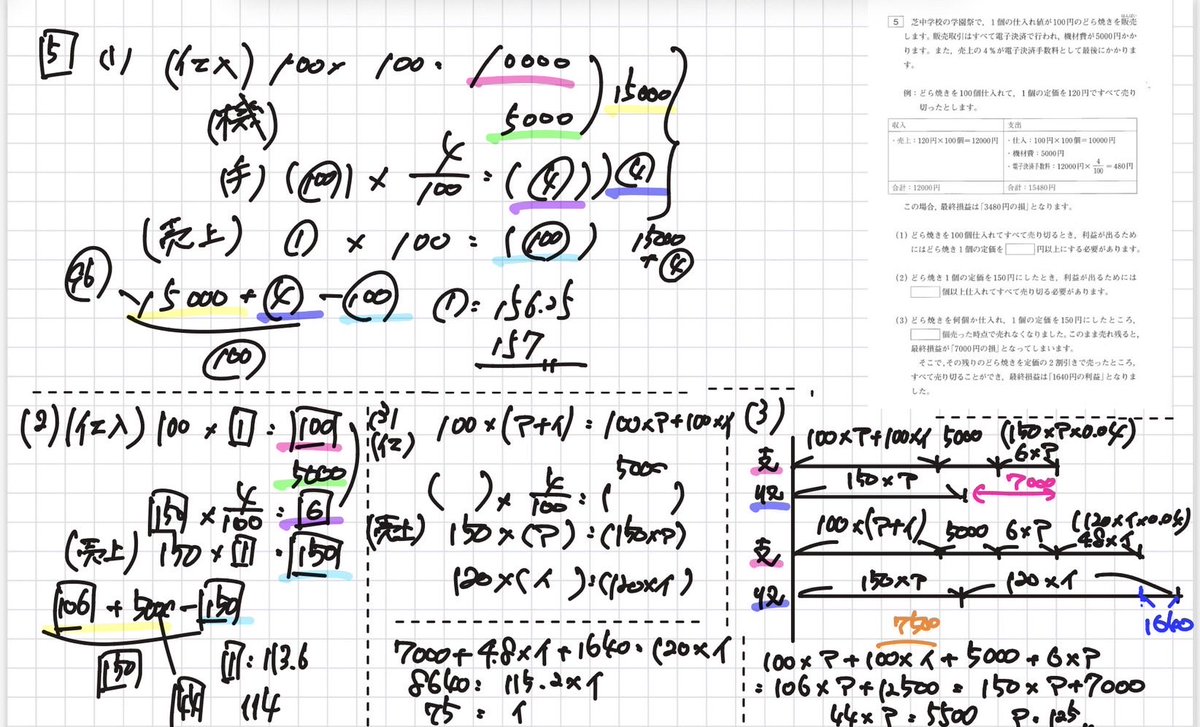 5 (1) (仕入) 100× 100 = 10000
(機) 5000 15000
(手) (100) × 4/100 = (4) 4
(売上) ① × 100 = (100) 15000 + ④
96
15000 + ④ − 100 ① = 156.25
100 157
(2) (仕入) 100 × 1 = 100
5000
150 × 4/100 = 6
(売上) 150 × 1 = 150
106 + 5000 − 150
150 1 : 113.6
44 114
(3)
(仕) 100×(ア+イ) = 100×ア+100×イ
5000
( ) × 4/100 = ( )
(売上) 150×(ア) = (150×ア)
120×(イ) = (120×イ)
7000+4.8×イ+1640 = 120×イ
8640 = 115.2×イ
75 = イ
(3)
100×ア+100×イ 5000 (150×ア×0.04)
支 6×ア
収 150×ア 7000
100×(ア+イ) 5000 6×ア (120×イ×0.04)
支 4.8×イ
収 150×ア 120×イ
7500 1640
100×ア+100×イ+5000+6×ア
=106×ア+12500 = 150×ア+7000
44×ア=5500 ア=125
5 芝中学校の学園祭で、1個の仕入れ値が100円のどら焼きを販売
はんばい
します。販売取引はすべて電子決済で行われ、機材費が5000円かか
ります。また、売上の4%が電子決済手数料として最後にかかりま
す。
例:どら焼きを100個仕入れて、1個の定価を120円ですべて売り
切ったとします。
収入 支出
・売上:120円×100個=12000円 ・仕入:100円×100個=10000円
・機材費:5000円
・電子決済手数料:12000円×4/100=480円
合計:12000円 合計:15480円
この場合、最終損益は「3480円の損」となります。
(1) どら焼きを100個仕入れてすべて売り切るとき、利益が出るため
にはどら焼き1個の定価を 円以上にする必要があります。
(2) どら焼き1個の定価を150円にしたとき、利益が出るためには
個以上仕入れてすべて売り切る必要があります。
(3) どら焼きを何個か仕入れ、1個の定価を150円にしたところ、
個売った時点で売れなくなりました。このまま売れ残ると、
最終損益が「7000円の損」となってしまいます。
そこで、その残りのどら焼きを定価の2割引きで売ったところ、
すべて売り切ることができ、最終損益は「1640円の利益」となりま
した。